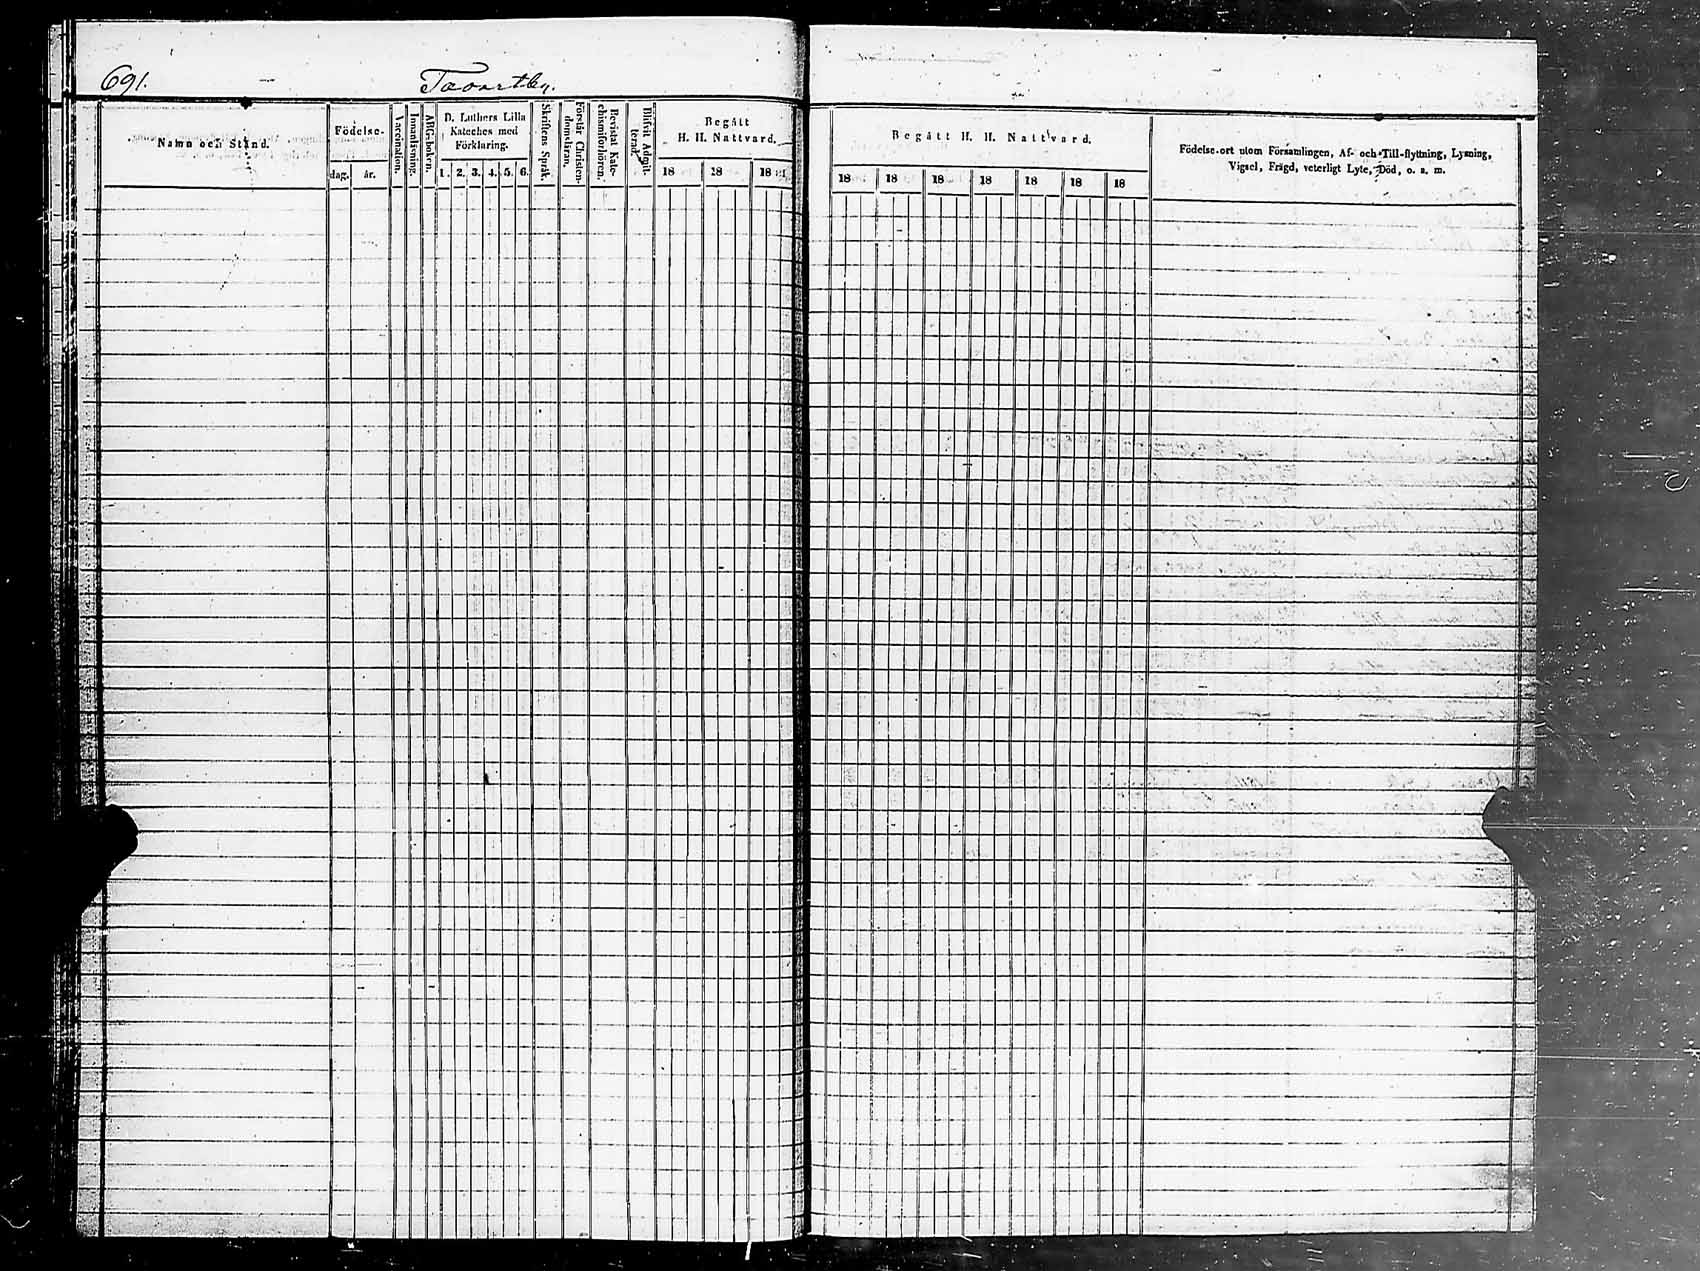 691.
Tavastby.
Namn och Stånd.
Födelse-
dag.
år.
Vaccination.
Innanläsning.
ABC-boken.
D. Luthers Lilla
Kateches med
Förklaring.
1. 2. 3. 4. 5. 6.
Skriftens Språk.
Förstår Christen-
domsläran.
Bevistat Kate-
chismiförhören.
Blifvit Admit-
terad.
Begått
H. H. Nattvard.
18 18 18
Begått H. H. Nattvard.
18 18 18 18 18 18 18
Födelse-ort utom Församlingen, Af- och Till-flyttning, Lysning,
Vigsel, Frägd, veterligt Lyte, Död, o. s. m.